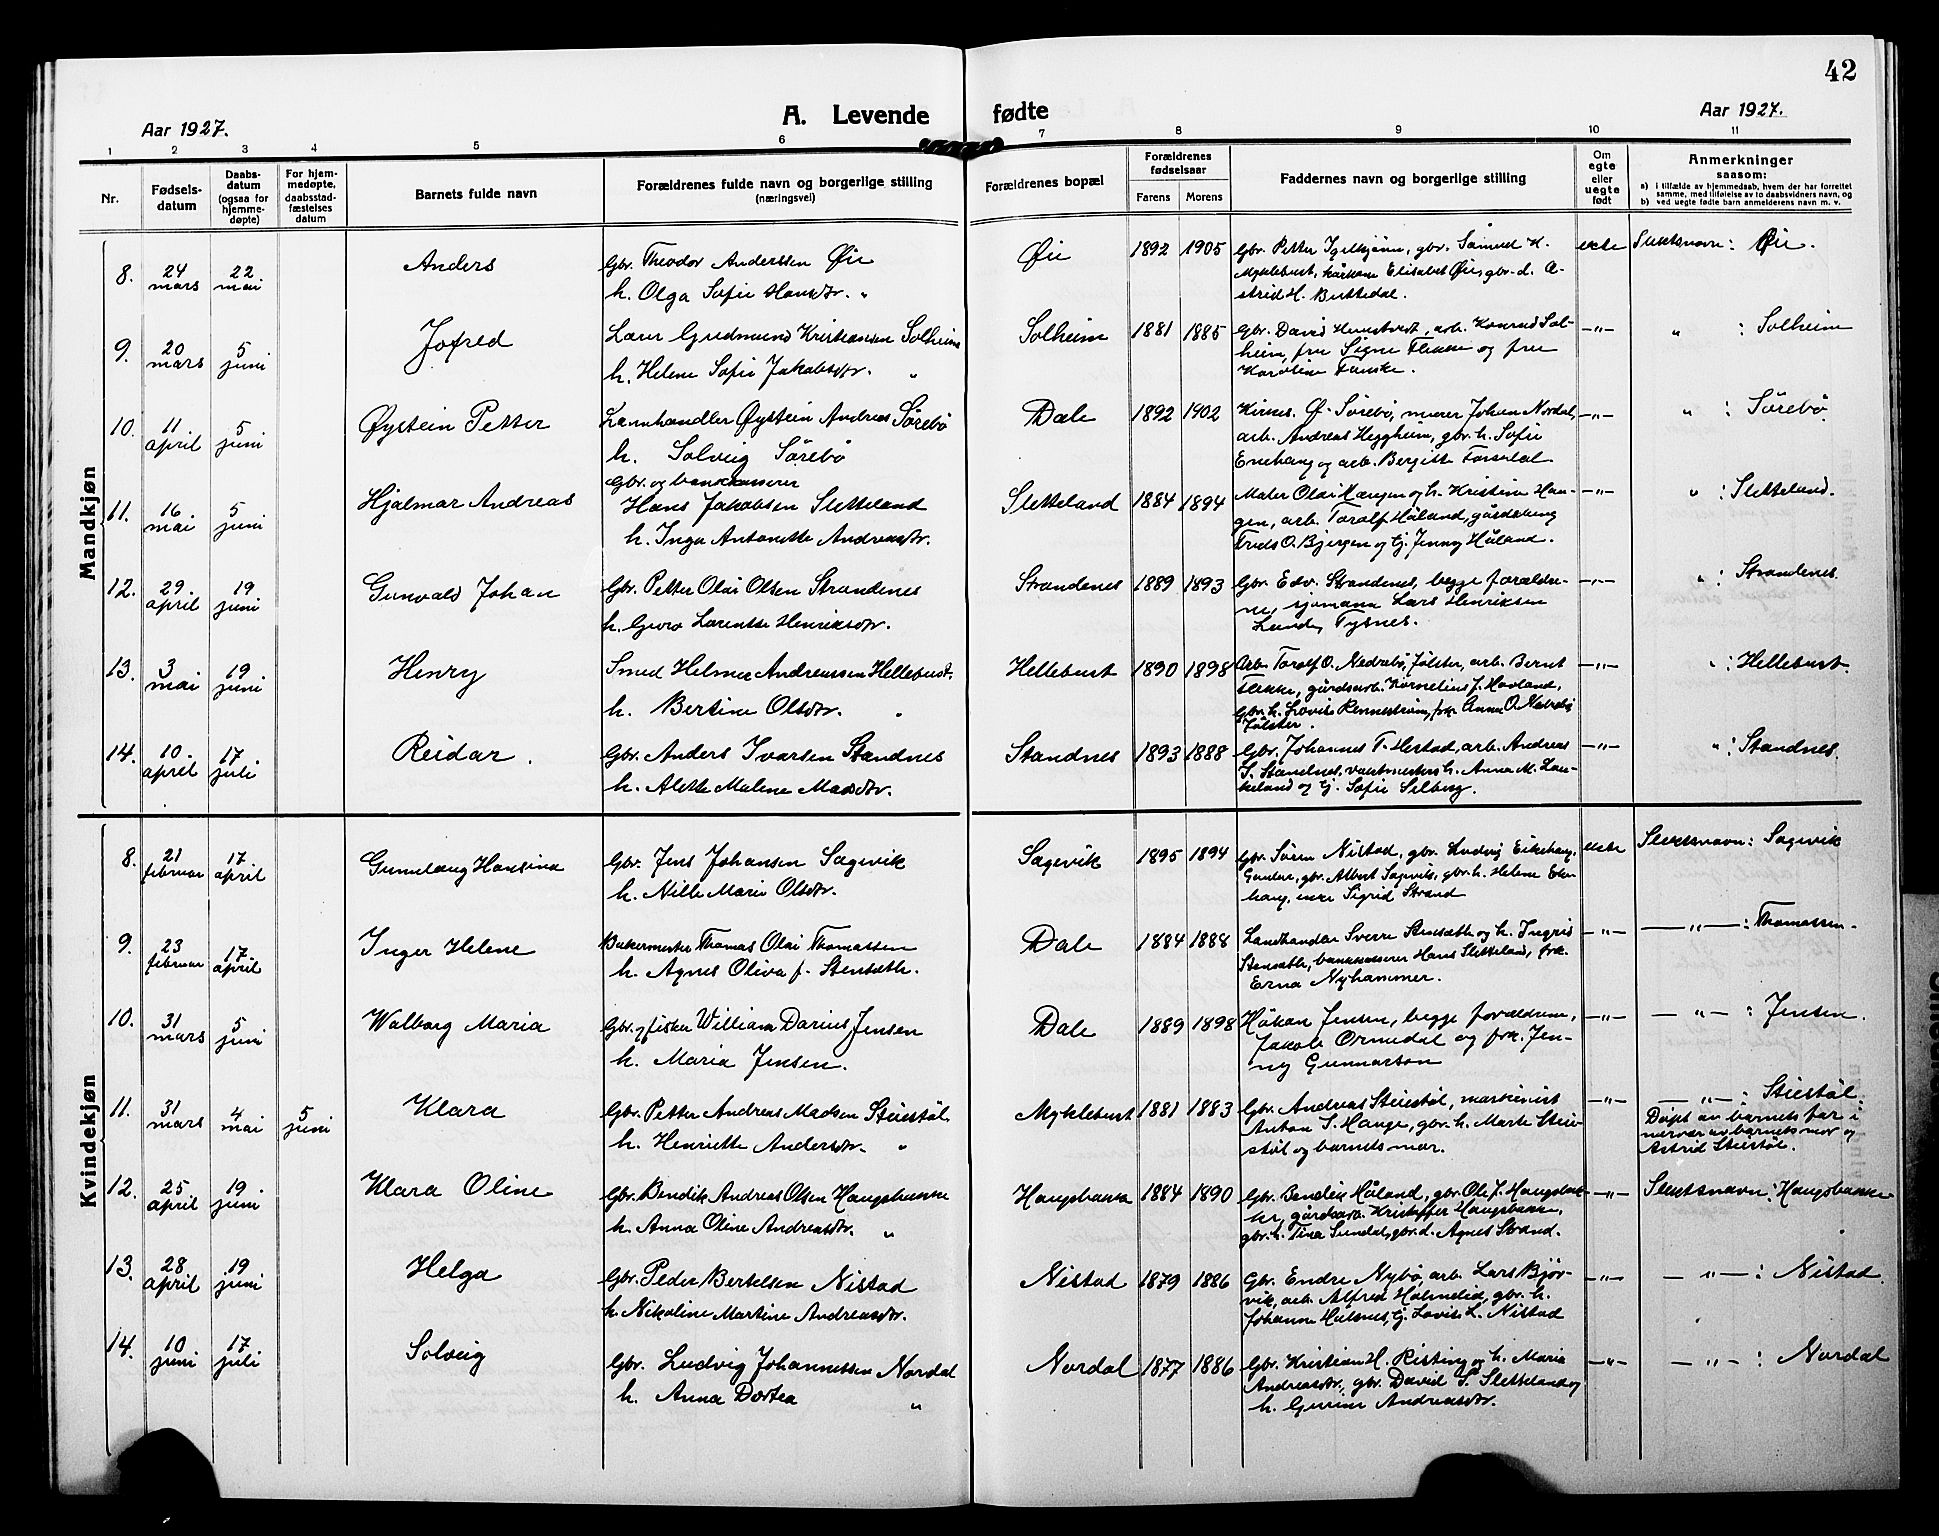 42
A. Levende fødte
Aar 1927.
Aar 1927.
1 2 3 4 5 6 7 8 9 10 11
Nr.
Fødsels-
datum
Daabs-
datum
(ogsaa for
hjemme-
døpte)
For hjem-
medøpte,
daabsstad-
fæstelses
datum
Barnets fulde navn
Forældrenes fulde navn og borgerlige stilling
(næringsvei)
Forældrenes bopæl
Forældrenes
fødselsaar
Farens Morens
Faddernes navn og borgerlige stilling
Om
egte
eller
uegte
født
Anmerkninger
saasom:
a) i tilfælde av hjemmedaab, hvem der har forrettet
samme, med tilføielse av to daabsvidners navn, og
b) ved uegte fødte barn anmelderens navn m. v.
Mandkjøn
8. 24 mars 22 mai
Anders
Gbr. Theodor Anderssen Øie
h. Olga Sofie Hansdtr. "
Øie 1892 1905
Gbr. Petter Igelkjøn, gbr. Samuel K.
Myklebust, kårkone Elisabet Øie, gbr. d. A-
strid H. Buttedal.
ekte
Slektsnavn: Øie.
9. 20 mars 5 juni
Jofred
Lærer Gudmund Kristiansen Solheim
h. Helene Sofie Jakobsdtr. "
Solheim 1881 1885
Gbr. David Hunstvet, arb. Konrad Sol-
heim, fru Signe Flekke og fru
Karoline Fauske.
-"-
" : Solheim
10. 11 april 5 juni
Øystein Petter
Landhandler Øystein Andreas Sørebø
h. Solveig Sørebø
Dale 1892 1902
Kirkes. Ø. Sørebø, murer Johan Nordal,
arb. Andreas Heggheim, gbr. h. Sofie
Enehaug og arb. Bergitte Forsdal
-"-
" : Sørebø
11. 16 mai 5 juni
Hjalmar Andreas
Gbr. og bankkasserer
Hans Jakobsen Sletteland
h. Inga Antonette Andreasdtr.
Sletteland 1884 1894
Maler Olai Haugen og h. Kristine Hau-
gen, arb. Toralf Håland, gårdsbrug
Frits O. Bjergen og tj. Jenny Håland.
-"-
" : Sletteland.
12. 29. april 19 juni
Gunvald Johan
Gbr. Petter Olai Olsen Strandenes
h. Guro Lorentse Henriksdtr.
Strandenes 1889 1893
Gbr. Edv. Strandenes, begge forældre-
ne, sjømann Lars Henriksen
Lunde, Tysnes.
-"-
" : Strandenes.
13. 3 mai 19 juni
Henry
Smed Helmer Andreassen Hellebust.
h. Bertine Olsdtr. "
Hellebust 1890 1898
Arb. Toralf O. Nedrebø, Jølster, arb. Bernt
Flekke, gårdsarb. Kornelius J. Hovland,
Gbr. h. Lovise Rennestrøm, frk. Anna O. Nedrebø
Jølster.
-"-
" : Hellebust.
14. 10. april 17 juli
Reidar.
Gbr. Anders Ivarsen Standnes
h. Alette Malene Masdtr.
Standnes 1893 1888
Gbr. Johannes T. Hestad, arb. Andreas
I. Standnes, vaktmesters h. Anna M. Lau-
keland og tj. Sofie Selberg.
-"-
" : Standnes.
Kvindekjøn
8. 21 februar 17 april
Gunnlaug Hansina
Gbr. Jens Johansen Sagevik
h. Nille Marie Olsdtr.
Sagevik 1895 1894
Gbr. Søren Nistad, gbr. Ludvig Eikehaug,
Guddal, gbr. Albert Sagevik, gbr. h. Helene Eke-
haug, enke Sigrid Strand
ekte
Slektsnavn: Sagevik
9. 23 februar 17 april
Inger Helene
Bakermester Thomas Olai Thomassen
h. Agnes Oliva f. Stensæth.
Dale 1884 1888
Landhandler Sverre Stensæth og h. Ingrid
Stensæth, bankkasserer Hans Sletteland, frk.
Erna Nyhammer.
-"-
-"- : Thomassen.
10. 31 mars 5 juni
Walborg Maria
Gbr. og fisker William Darius Jensen
h. Maria Jensen.
Dale 1889 1898
Håkon Jensen, begge forældrene,
Jakob Ormedal og frk. Jen-
ny Gunnarson
-"-
-"- : Jensen.
11. 31 mars 4 mai 5 juni
Klara
Gbr. Petter Andreas Madsen Steiestøl
h. Henriette Andersdtr. "
Myklebust 1881 1883
Gbr. Andreas Steiestøl, maskinist
Anton I. Hauge, gbr. h. Marte Steie-
støl og barnets mor.
-"-
-"- : Steiestøl.
Døpt av barnets far i
nærvær av barnets mor og
Astrid Steiestøl.
12. 25 april 19 juni
Klara Oline
Gbr. Bendik Andreas Olsen Haugsbakke
h. Anna Oline Andreasdtr. "
Haugsbakke 1884 1890
Gbr. Bendik Håland, gbr. Ole J. Haugsbak-
ke, gårdsarb. Kristoffer Haugsbakke,
gbr. h. Tina Sundal, gbr. d. Agnes Strand.
-"-
Slektsnavn: Haugsbakke
13. 28 april 19 juni
Helga
Gbr. Peder Bertelsen Nistad
h. Nikoline Martine Andreasdtr.
Nistad 1879 1886
Gbr. Endre Nybø, arb. Lars Bjør-
vik, arb. Alfred Holmelid, gbr. h.
Johanne Hulsnes, tj. Lovise L. Nistad
-"-
-"- : Nistad.
14. 10 juni 17 juli
Solveig
Gbr. Ludvig Johannessen Nordal
h. Anna Dortea "
Nordal 1877 1886
Gbr. Kristian H. Risting og h. Maria
Andreasdtr., gbr. David S. Sletteland og
h. Gurine Andreasdtr.
-"-
-"- : Nordal